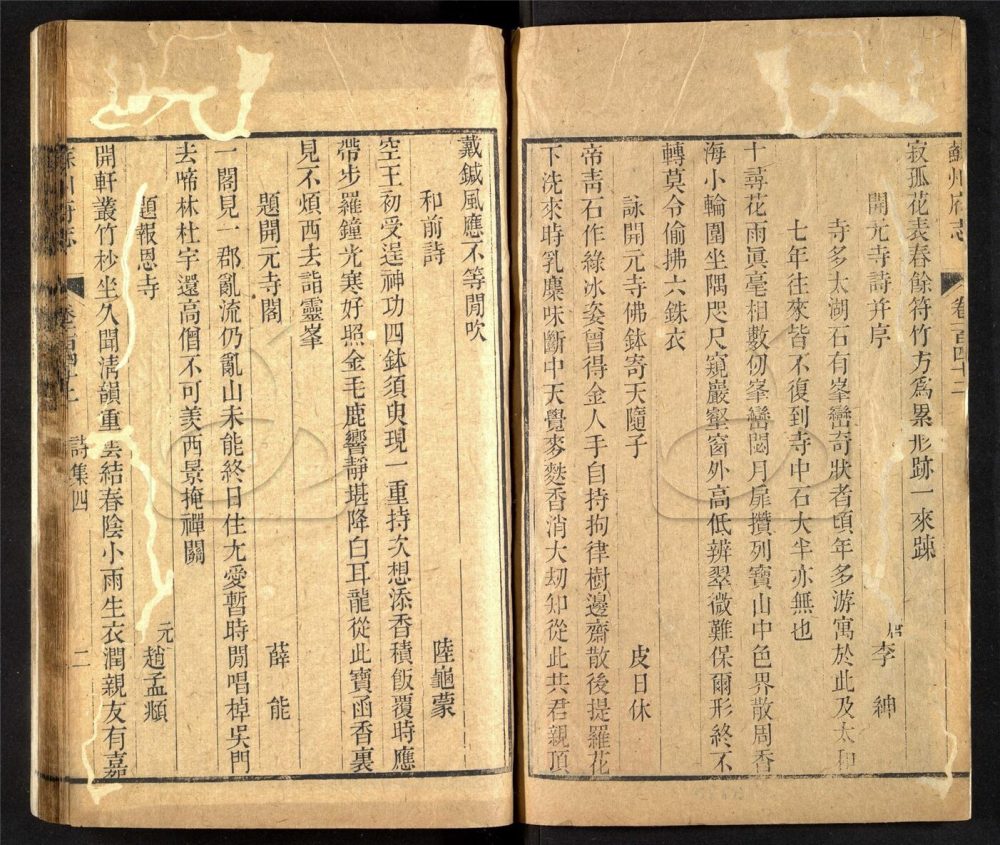 蘇州府志 卷一百四十二
寂孤花表春餘符竹方為累形跡一來踈
開元寺詩幷序 李紳
寺多太湖石有峯巒奇狀者頃年多游寓於此及太和
七年往來皆不復到寺中石大半亦無也
十尋花雨眞毫相數仞峯巒閟月扉攢列寶山中色界散周香
海小輪圍坐隅咫尺窺巖壑窗外高低辨翠微難保爾形終不
轉莫令偷拂六銖衣
詠開元寺佛鉢寄天隨子 皮日休
帝靑石作綠冰姿曾得金人手自持拘律樹邊齋散後提羅花
下洗來時乳麋味斷中天覺麥麨香消大刧知從此共君親頂
戴鍼風應不等閒吹
和前詩 陸龜蒙
空王初受逞神功四鉢須臾現一重持次想添香積飯覆時應
帶步羅鐘光寒好照金毛鹿響靜堪降白耳龍從此寶函香裏
見不煩西去詣靈峯
題開元寺閣 薛能
一閣見一郡亂流仍亂山未能終日住尢愛暫時閒唱棹吳門
去啼林杜宇還高僧不可羡西景掩禪關
題報恩寺 元 趙孟頫
開軒叢竹杪坐久聞淸韻重雲結春陰小雨生衣潤親友有嘉
蘇州府志 卷一百四十二 詩集四 二